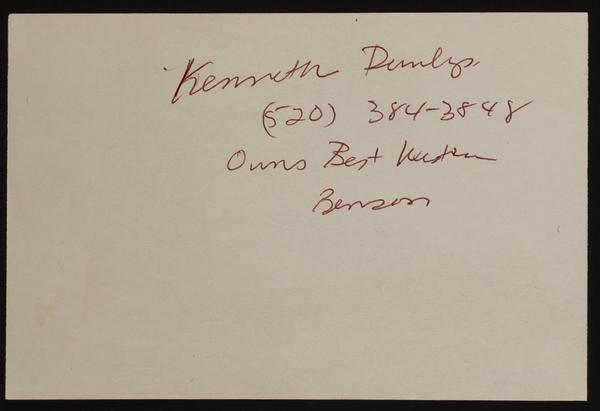 Kenneth Dunlop
(520) 384-3848
Owns Best Western
Benson